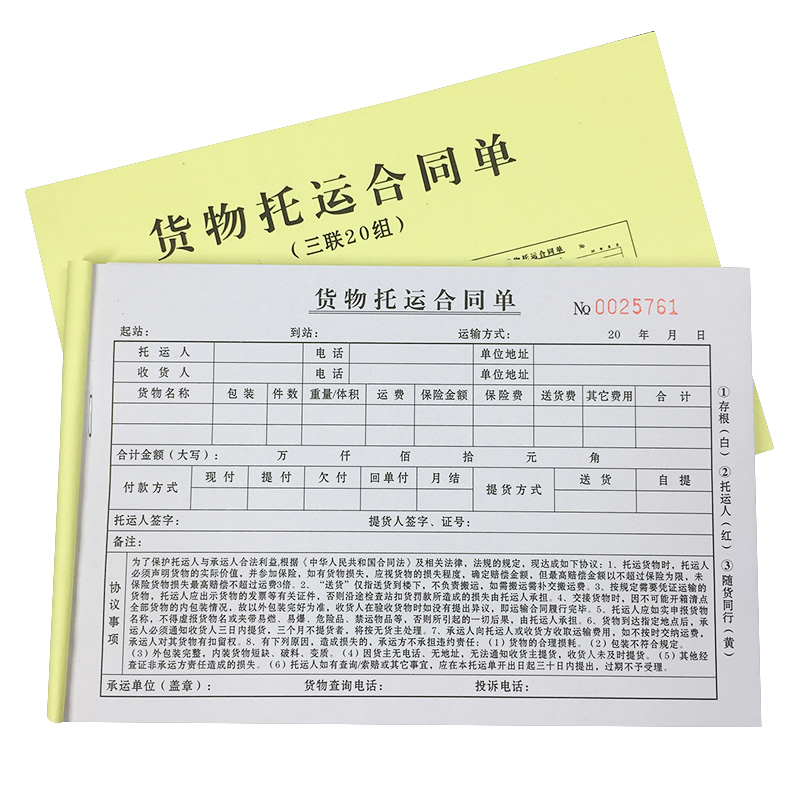 货物托运合同单
（三联20组）
货物托运合同单
№
货物托运合同单
№ 0025761
起站： 到站： 运输方式： 20 年 月 日
托运人 电话 单位地址
收货人 电话 单位地址
货物名称 包装 件数 重量/体积 运费 保险金额 保险费 送货费 其它费用 合计
合计金额（大写）： 万 仟 佰 拾 元 角
付款方式 现付 提付 欠付 回单付 月结 提货方式 送货 自提
托运人签字： 提货人签字、证号：
备注：
协议事项
为了保护托运人与承运人合法利益,根据《中华人民共和国合同法》及相关法律，法规的规定，现达成如下协议：1、托运货物时，托运人
必须声明货物的实际价值，并参加保险，如有货物损失，应视货物的损失程度，确定赔偿金额，但最高赔偿金额以不超过保险金额为限，未
保险货物损失最高赔偿不超过运费3倍。2、“送货”仅指送货到楼下，不负责搬运，如需搬运需补交搬运费。3、按规定需要凭证运输的
货物，托运人应出示货物的发票等有关证件，否则沿途检查站扣货罚款所造成的损失由托运人承担。4、交接货物时，因不可能开箱清点
全部货物的内包装情况，故以外包装完好为准，收货人在验收货物时如没有提出异议，即运输合同履行完毕。5、托运人应如实申报货物
名称，不得虚报货物名或夹带易燃、易爆、危险品、禁运物品等，否则所引起的一切后果，由托运人承担。6、货物到达指定地点后，承
运人必须通知收货人三日内提货，三个月不提货者，将按无货主处理。7、承运人向托运人或收货方收取运输费用，如不按时交纳运费，
承运人对其货物有扣留权。8、有下列原因，造成损失的，承运方不承担违约责任；（1）货物的合理损耗。（2）包装不符合规定。
（3）外包装完整，内装货物短缺、破料、变质。（4）因货主无电话、无地址，无法通知收货主提货，收货人未及时提货。（5）其他经
查证非承运方责任造成的损失。（6）托运人如有查询/索赔或其它事宜，应在本托运单开出日起三十日内提出，过期不予受理。
承运单位（盖章）： 货物查询电话： 投诉电话：
①存根（白）②托运人（红）③随货同行（黄）